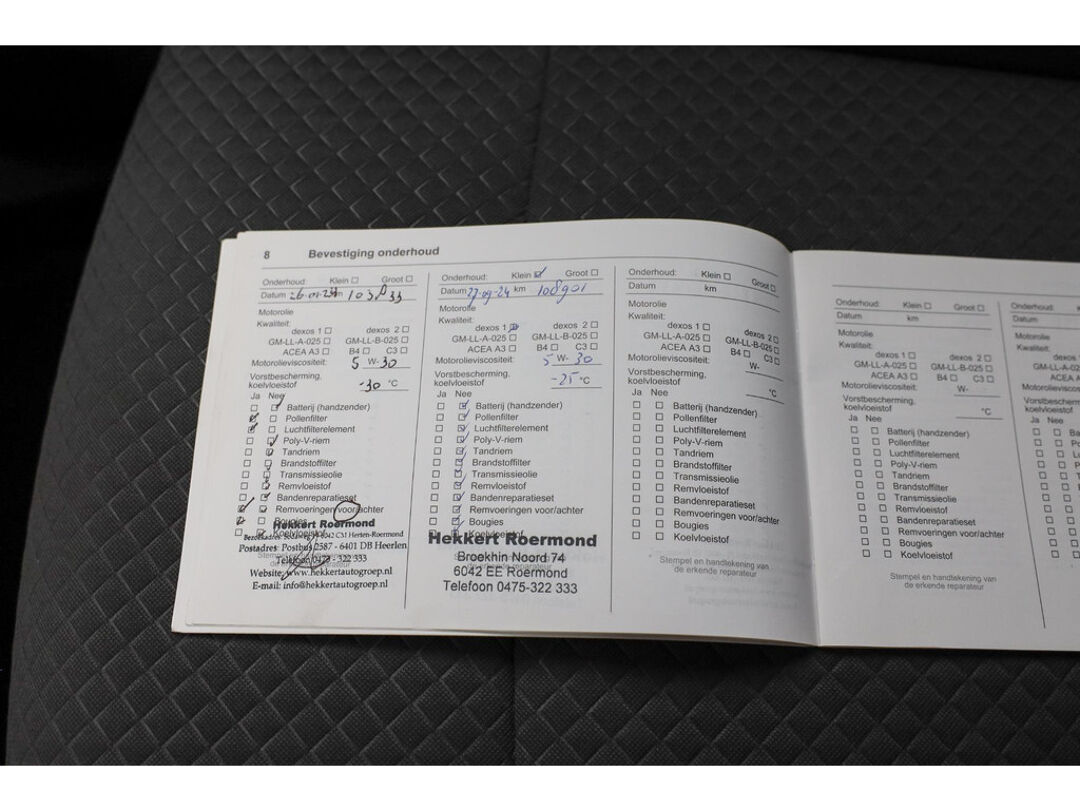 8 Bevestiging onderhoud
Onderhoud: Klein Groot
Datum km 103.033
Motorolie
Kwaliteit:
dexos 1 dexos 2
GM-LL-A-025 GM-LL-B-025
ACEA A3 B4 C3
Motorolieviscositeit: 5 W- 30
Vorstbescherming,
koelvloeistof -30 °C
Ja Nee
Batterij (handzender)
Pollenfilter
Luchtfilterelement
Poly-V-riem
Tandriem
Brandstoffilter
Transmissieolie
Remvloeistof
Bandenreparatieset
Remvoeringen voor/achter
Bougies
Koelvloeistof
Hekkert Roermond
6042 CM Herten-Roermond
Postadres: Postbus 2587 - 6401 DB Heerlen
Telefoon 0475 - 322 333
Website: www.hekkertautogroep.nl
E-mail: info@hekkertautogroep.nl
Onderhoud: Klein Groot
Datum 27-09-24 km 108901
Motorolie
Kwaliteit:
dexos 1 dexos 2
GM-LL-A-025 GM-LL-B-025
ACEA A3 B4 C3
Motorolieviscositeit: 5 W- 30
Vorstbescherming,
koelvloeistof -25 °C
Ja Nee
Batterij (handzender)
Pollenfilter
Luchtfilterelement
Poly-V-riem
Tandriem
Brandstoffilter
Transmissieolie
Remvloeistof
Bandenreparatieset
Remvoeringen voor/achter
Bougies
Koelvloeistof
Hekkert Roermond
Broekhin Noord 74
6042 EE Roermond
de erkende reparateur
Telefoon 0475-322 333
Onderhoud: Klein Groot
Datum km
Motorolie
Kwaliteit:
dexos 1 dexos 2
GM-LL-A-025 GM-LL-B-025
ACEA A3 B4 C3
Motorolieviscositeit: W-
Vorstbescherming,
koelvloeistof °C
Ja Nee
Batterij (handzender)
Pollenfilter
Luchtfilterelement
Poly-V-riem
Tandriem
Brandstoffilter
Transmissieolie
Remvloeistof
Bandenreparatieset
Remvoeringen voor/achter
Bougies
Koelvloeistof
Stempel en handtekening van
de erkende reparateur
Onderhoud: Klein Groot
Datum km
Motorolie
Kwaliteit:
dexos 1 dexos 2
GM-LL-A-025 GM-LL-B-025
ACEA A3 B4 C3
Motorolieviscositeit: W-
Vorstbescherming,
koelvloeistof °C
Ja Nee
Batterij (handzender)
Pollenfilter
Luchtfilterelement
Poly-V-riem
Tandriem
Brandstoffilter
Transmissieolie
Remvloeistof
Bandenreparatieset
Remvoeringen voor/achter
Bougies
Koelvloeistof
Stempel en handtekening van
de erkende reparateur
Onderhoud:
Datum
Motorolie
Kwaliteit:
Ja Nee